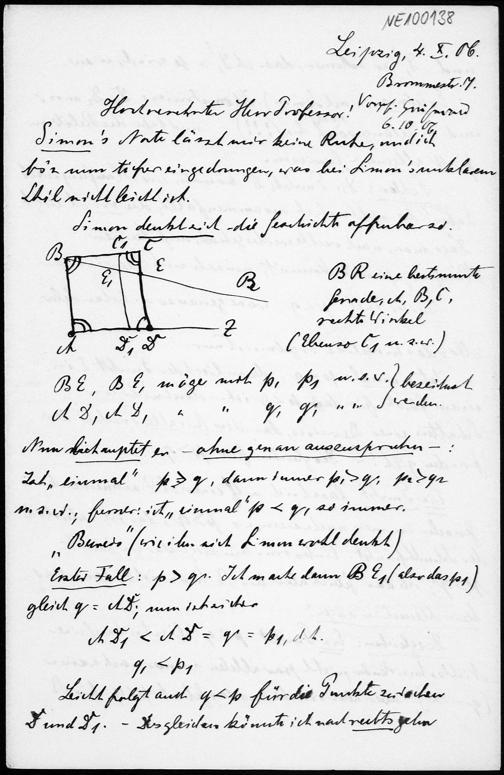 NE100138
Leipzig, 4. X. 06.
Brommestr. 7.
Hochverehrter Herr Professor!
6.10.06
Simon's Note lässt mir keine Ruhe, und ich
bin nun tiefer eingedrungen, was bei Simons unklarem
Stil nicht leicht ist.
Simon denkt sich die Geschichte offenbar so.
B C1 C
E1 E
R
A D1 D Z
BR eine bestimmte
Gerade, A, B, C,
rechte Winkel
(Ebenso C1 u.s.w.)
BE, BE1 möge mit p, p1 u.s.w. } bezeichnet
AD, AD1 " " q, q1 " " } werden.
Nun behauptet er – ohne genau auszusprechen – :
Ist „einmal“ p ≥ q, dann immer p1 > q1, p2 > q2
u.s.w.; ferner: ist „einmal“ p < q, so immer.
„Beweis“ (wie ihn sich Simon wohl denkt)
Erster Fall: p > q. Ich mache dann BE1 (also das p1)
gleich q = AD; nun ist sicher
AD1 < AD = q = p1, d.h.
q1 < p1
Leicht folgt auch q < p für die Punkte zwischen
D und D1. – Desgleichen könnte ich nach rechts gehn